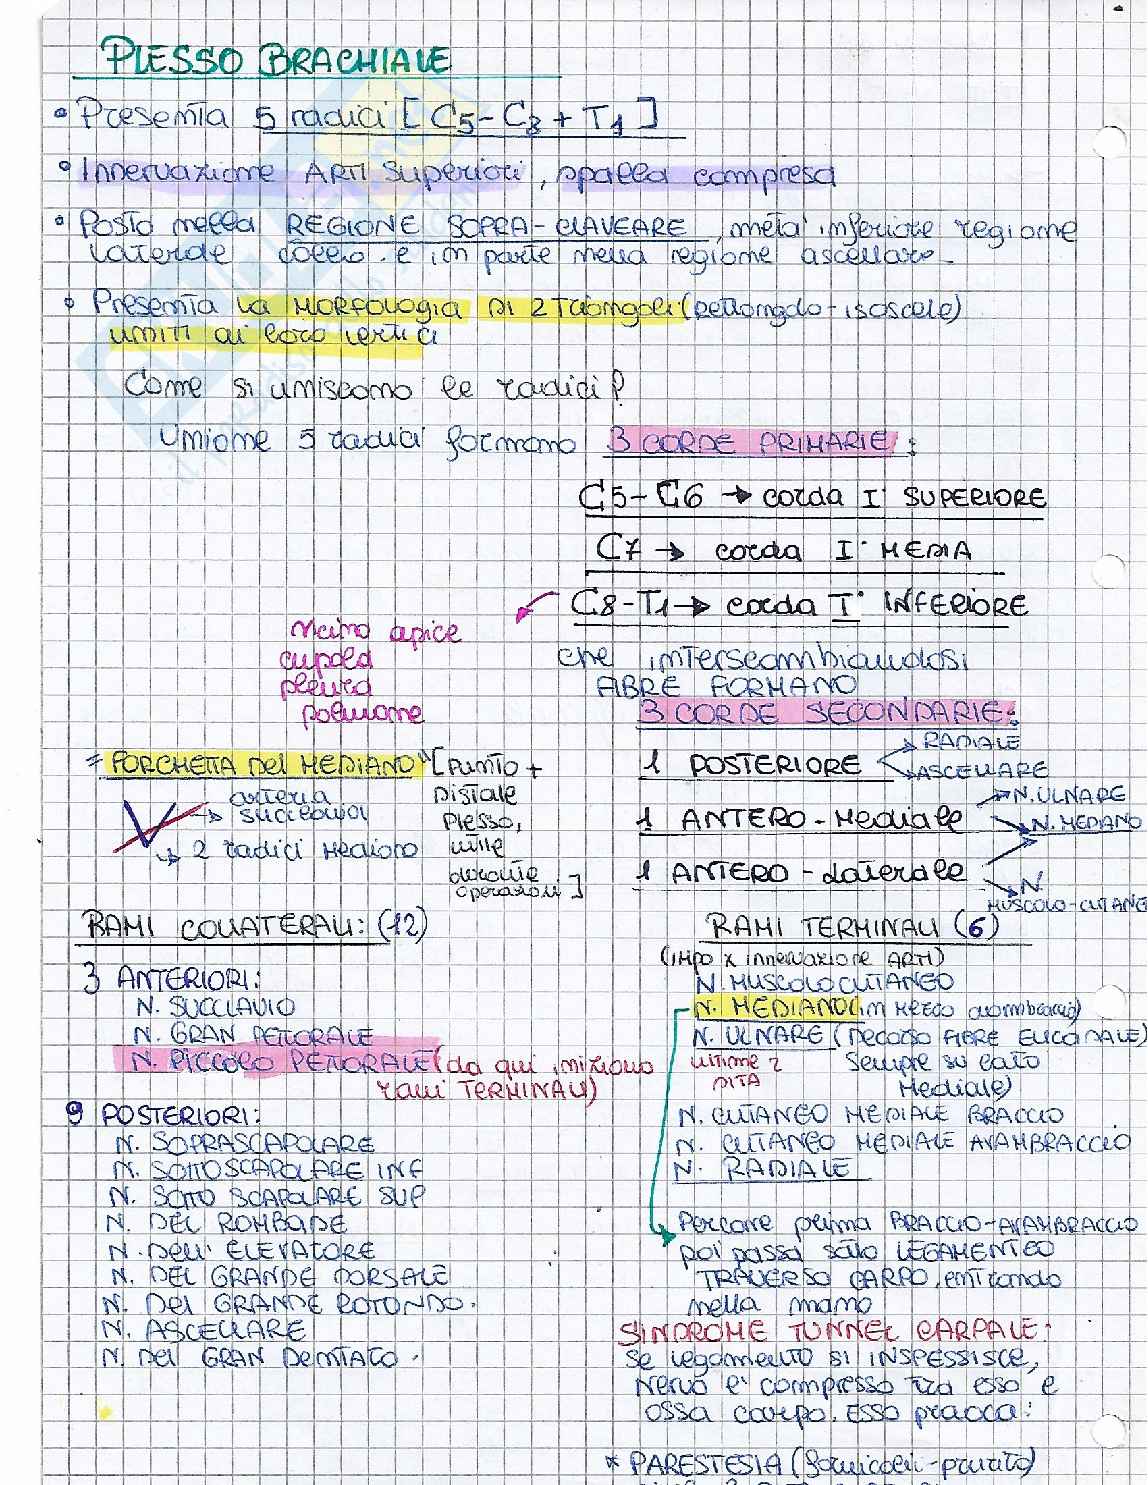 PLESSO BRACHIALE
• Presenta 5 radici [C5-C8 + T1]
• Innervazione ARTI Superiori, spalla compresa
• Posto nella REGIONE SOPRA-CLAVEARE, metà inferiore regione
laterale collo e in parte nella regione ascellare.
• Presenta la MORFOLOGIA DI 2 Triangoli (rettangolo-isoscele)
uniti ai loro vertici
Come si uniscono le radici?
Unione 5 radici formano 3 CORDE PRIMARIE:
C5-C6 → corda I° SUPERIORE
C7 → corda I° MEDIA
C8-T1 → corda I° INFERIORE
vicino apice
cupola
pleura
polmone
che interscambiandosi
FIBRE FORMANO
3 CORDE SECONDARIE:
1 POSTERIORE
RADIALE
ASCELLARE
1 ANTERO-Mediale
N. ULNARE
N. MEDIANO
1 ANTERO-Laterale
N.
MUSCOLO-CUTANEO
"FORCHETTA Del MEDIANO" [punto +
Distale
Plesso,
utile
durante
operazioni]
arteria
succlavia
2 radici Mediano
RAMI COLLATERALI: (12)
3 ANTERIORI:
N. SUCCLAVIO
N. GRAN PETTORALE
N. PICCOLO PETTORALE (da qui iniziano
rami TERMINALI)
9 POSTERIORI:
N. SOPRASCAPOLARE
N. SOTTOSCAPOLARE INF
N. SOTTO SCAPOLARE SUP
N. DEL ROMBOIDE
N. Dell' ELEVATORE
N. DEL GRANDE DORSALE
N. Del GRANDE ROTONDO.
N. ASCELLARE
N. Del GRAN Dentato.
RAMI TERMINALI (6)
(IMPO x innervazione ARTI)
N. MUSCOLOCUTANEO
N. MEDIANO (in mezzo avambraccio)
N. ULNARE (Decorso FIBRE ELICOIDALE)
ultime 2
DITA
Sempre su lato
Mediale)
N. CUTANEO MEDIALE BRACCIO
N. CUTANEO MEDIALE AVAMBRACCIO
N. RADIALE
Percorre prima BRACCIO-AVAMBRACCIO
poi passa sotto LEGAMENTO
TRAVERSO CARPO, entrando
nella mano
SINDROME TUNNEL CARPALE:
Se legamento SI INSPESSISCE,
Nervo è compresso tra esso e
ossa carpo. ESSO
* PARESTESIA (formicolii-prurito)